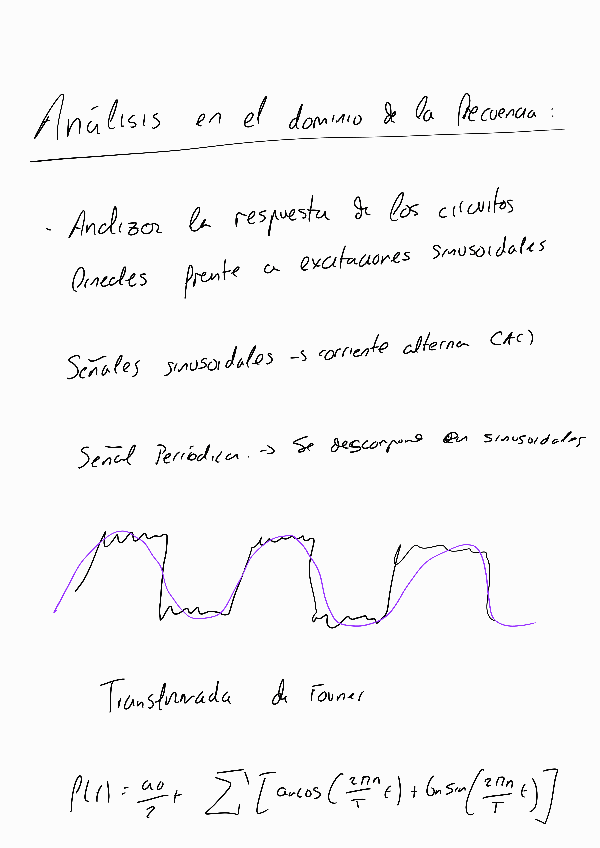 Análisis en el dominio de la frecuencia:
· Analizar la respuesta de los circuitos
lineales frente a excitaciones sinusoidales
Señales sinusoidales → corriente alterna (AC)
Señal Periódica. → Se descompone en sinusoidales
Transformada de Fourier
f(t) = a0/2 + ∑ [an cos (2πn/T t) + bn sin (2πn/T t)]